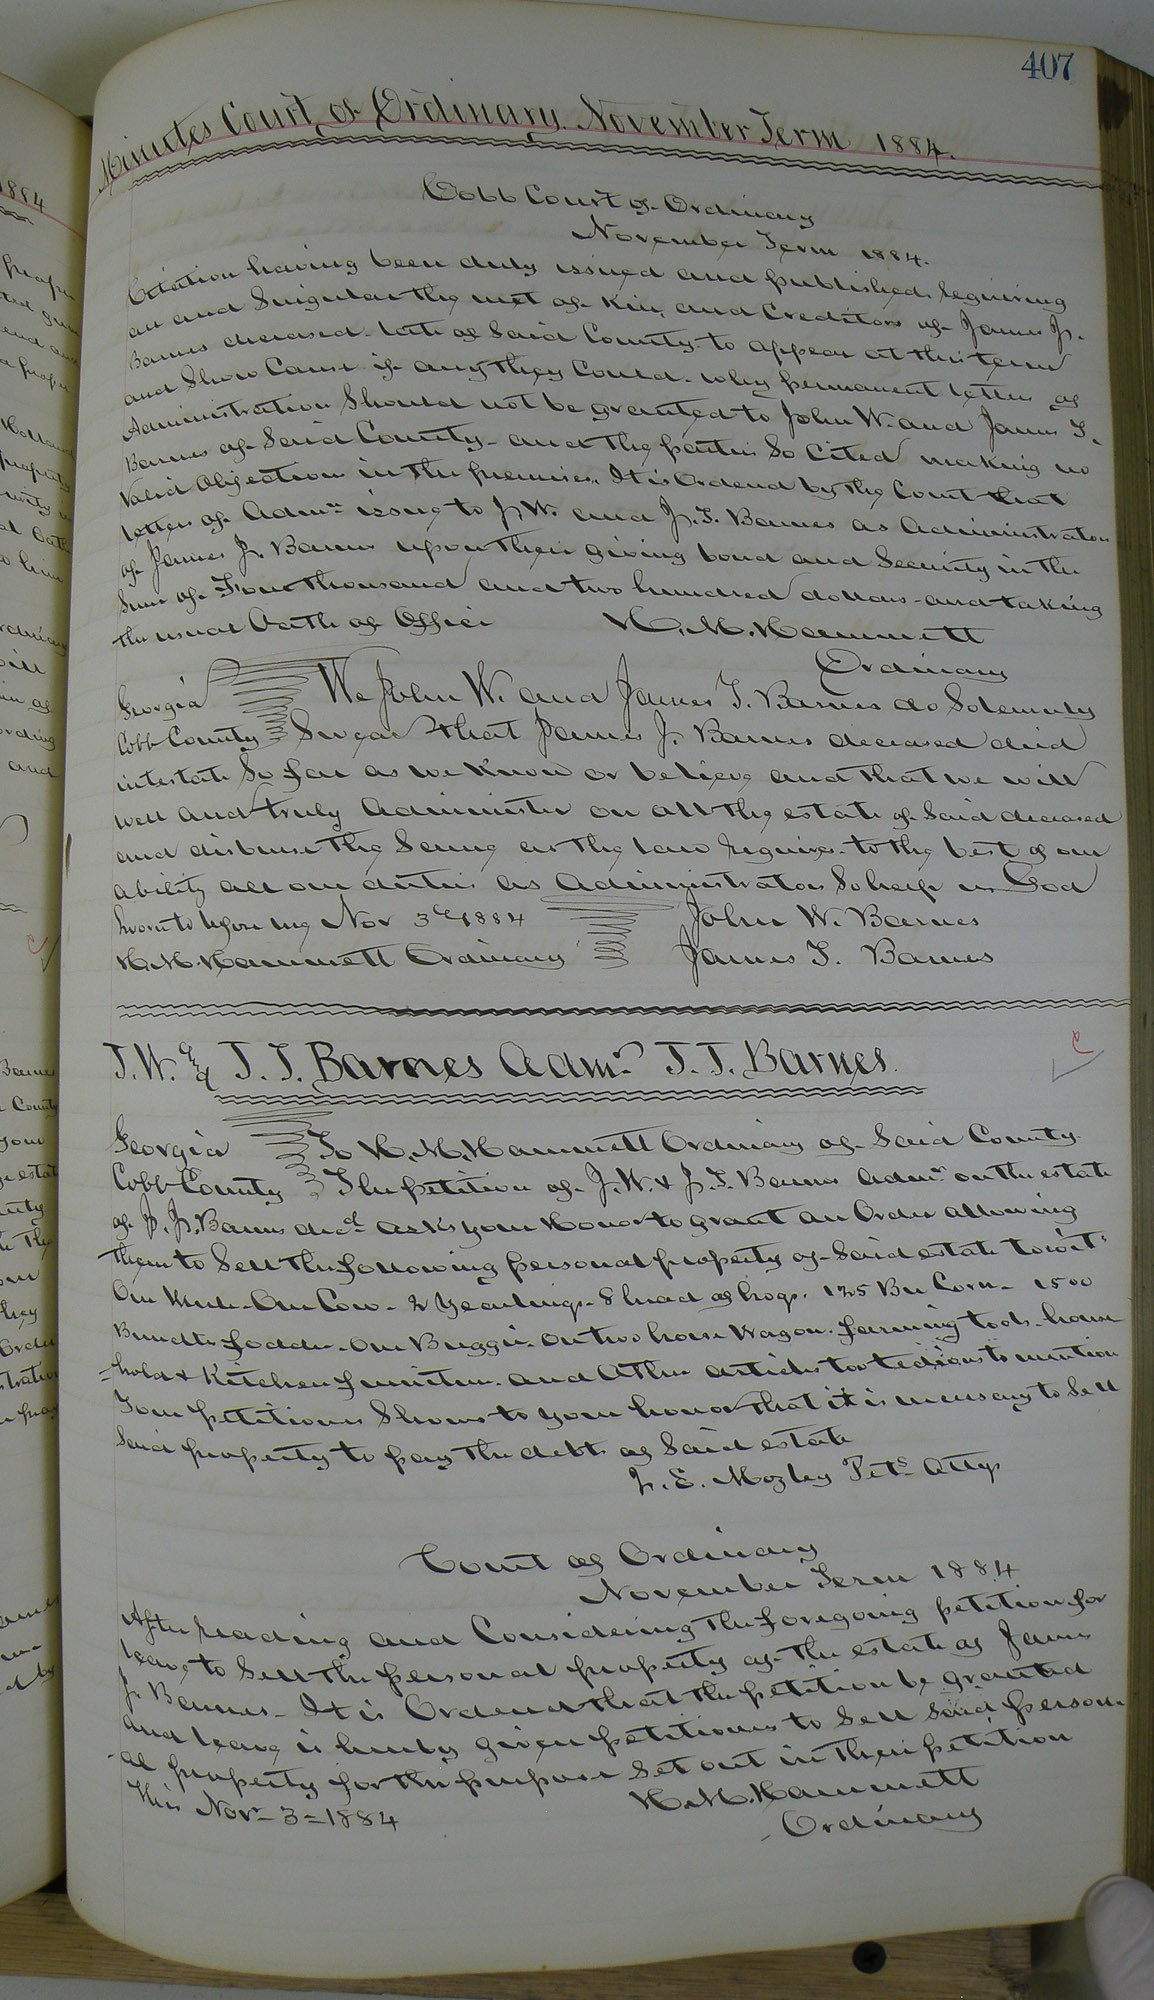 407
Minutes Court of Ordinary November Term 1884.
Cobb Court of Ordinary
November Term 1884.
Citation having been duly issued and published requiring
all and Singular the next of Kin and Creditors of James J.
Barnes deceased late of Said County to appear at this term
and Show Cause if any they Could why permanent letters of
Administration Should not be granted to John W. and James T.
Barnes of Said County and the parties So Cited making no
Valid Objection in the premises. It is Ordered by the Court that
letters of Admn issue to J. W. and J. T. Barnes as Administrators
of James J. Barnes upon their giving bond and Security in the
Sum of Four thousand and two hundred dollars and taking
the usual Oath of Office
H. M. Hammett
Ordinary
Georgia We John W. and James T. Barnes do Solemnly
Cobb County Swear that James J. Barnes deceased died
intestate So far as we Know or believe and that we will
well and truly Administer on all the estate of Said deceased
and disburse the Same as the law requires to the best of our
ability all our duties as Administrators So help us God
Sworn to before me Nov 3rd 1884 John W. Barnes
H. M. Hammett Ordinary James T. Barnes
J. W. & J. T. Barnes Admrs J. J. Barnes.
Georgia To H. M. Hammett Ordinary of Said County
Cobb County The petition of J. W. & J. T. Barnes Admrs on the estate
of J. J. Barnes decd asks your Honor to grant an Order allowing
them to Sell the following personal property of Said estate towit:
One Mule One Cow 2 Yearlings 8 head of hogs. 125 Bu Corn 1500
Bundles fodder One Buggie On two horse Wagon farming tools house
=hold & Kitchen furniture and Other articles too tedious to mention
Your petitioners Shows to your honor that it is necessary to Sell
Said property to pay the debts of Said estate
J. E. Mozley Pets Attys
Court of Ordinary
November Term 1884
After reading and Considering the foregoing petition for
leave to Sell the personal property of the estate of James
J. Barnes. It is Ordered that the petition be granted
and leave is hereby given petitioners to Sell Said person
-al property for the purpose Set out in their petition
This Novr 3= 1884 H. M. Hammett
Ordinary